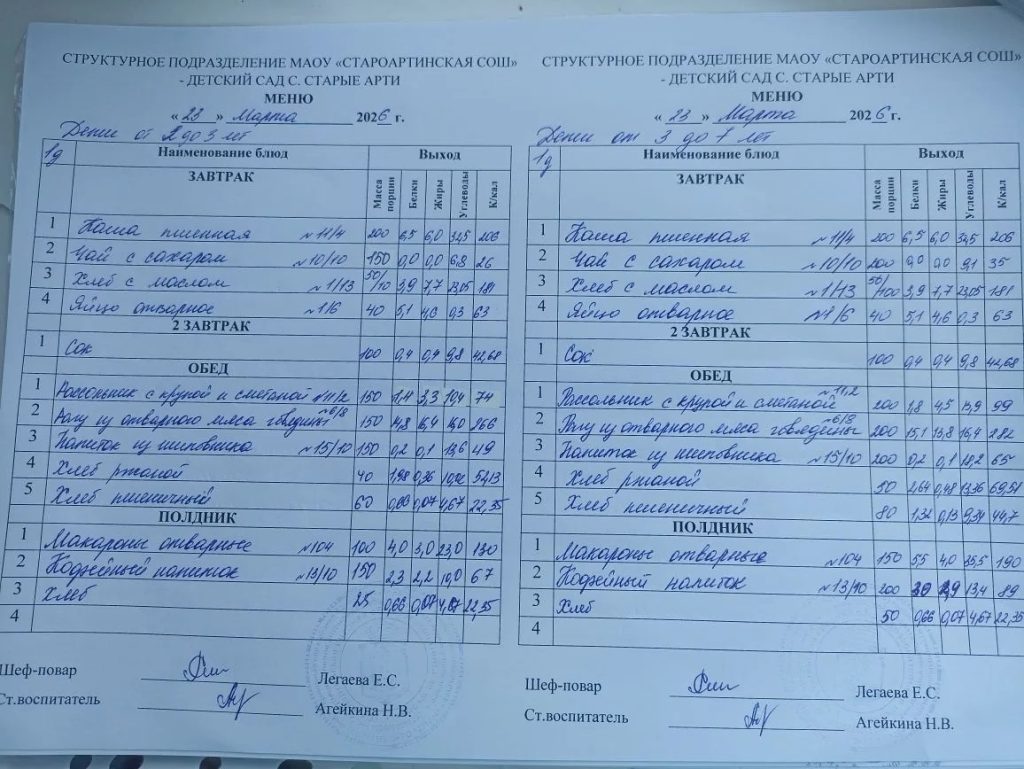 СТРУКТУРНОЕ ПОДРАЗДЕЛЕНИЕ МАОУ «СТАРОАРТИНСКАЯ СОШ»
- ДЕТСКИЙ САД С. СТАРЫЕ АРТИ
МЕНЮ
« 23 » Марта 2026 г.
Дети от 2 до 3 лет
1д Наименование блюд Выход
ЗАВТРАК Масса порции Белки Жиры Углеводы К/кал
1 Каша пшенная №11/4 200 6,5 6,0 32,5 206
2 Чай с сахаром №10/10 150 0,0 0,0 6,8 26
3 Хлеб с маслом №1/13 50/10 3,9 7,7 23,05 181
4 Яйцо отварное №1/6 40 5,1 4,6 0,3 63
2 ЗАВТРАК
1 Сок 100 0,4 0,4 9,8 42,68
ОБЕД
1 Рассольник с крупой и сметаной №11/2 150 1,4 3,3 10,4 74
2 Рагу из отварного мяса говядины №6/8 150
3 Напиток из шиповника №15/10 150 0,2 0,1 13,6 49
4 Хлеб ржаной 40 1,98 0,36
5 Хлеб пшеничный 60 0,66 0,07 4,67 22,35
ПОЛДНИК
1 Макароны отварные №104 100 4,0 3,0 23,0 130
2 Кофейный напиток №13/10 150 2,3 2,2 10,0 67
3 Хлеб 25 0,66 0,07 4,67 22,35
4
Шеф-повар Легаева Е.С.
Ст.воспитатель Агейкина Н.В.
СТРУКТУРНОЕ ПОДРАЗДЕЛЕНИЕ МАОУ «СТАРОАРТИНСКАЯ СОШ»
- ДЕТСКИЙ САД С. СТАРЫЕ АРТИ
МЕНЮ
« 23 » Марта 2026 г.
Дети от 3 до 7 лет
1д Наименование блюд Выход
ЗАВТРАК Масса порции Белки Жиры Углеводы К/кал
1 Каша пшенная №11/4 200 6,5 6,0 32,5 206
2 Чай с сахаром №10/10 200 0,0 0,0 9,1 35
3 Хлеб с маслом №1/13 50/100 3,9 7,7 23,05 181
4 Яйцо отварное №1/6 40 5,1 4,6 0,3 63
2 ЗАВТРАК
1 Сок 100 0,4 0,4 9,8 42,68
ОБЕД
1 Рассольник с крупой и сметаной №11,2 200 1,8 4,5 13,9 99
2 Рагу из отварного мяса говядины №6/8 200 15,1 13,8 16,4 282
3 Напиток из шиповника №15/10 200 0,2 0,1 18,2 65
4 Хлеб ржаной 50 2,64 0,48 13,36 69,51
5 Хлеб пшеничный 80 1,32 0,13 9,34 44,7
ПОЛДНИК
1 Макароны отварные №104 150 5,5 4,0 35,5 190
2 Кофейный напиток №13/10 200 13,4 89
3 Хлеб 50 0,66 0,07 4,67 22,35
4
Шеф-повар Легаева Е.С.
Ст.воспитатель Агейкина Н.В.